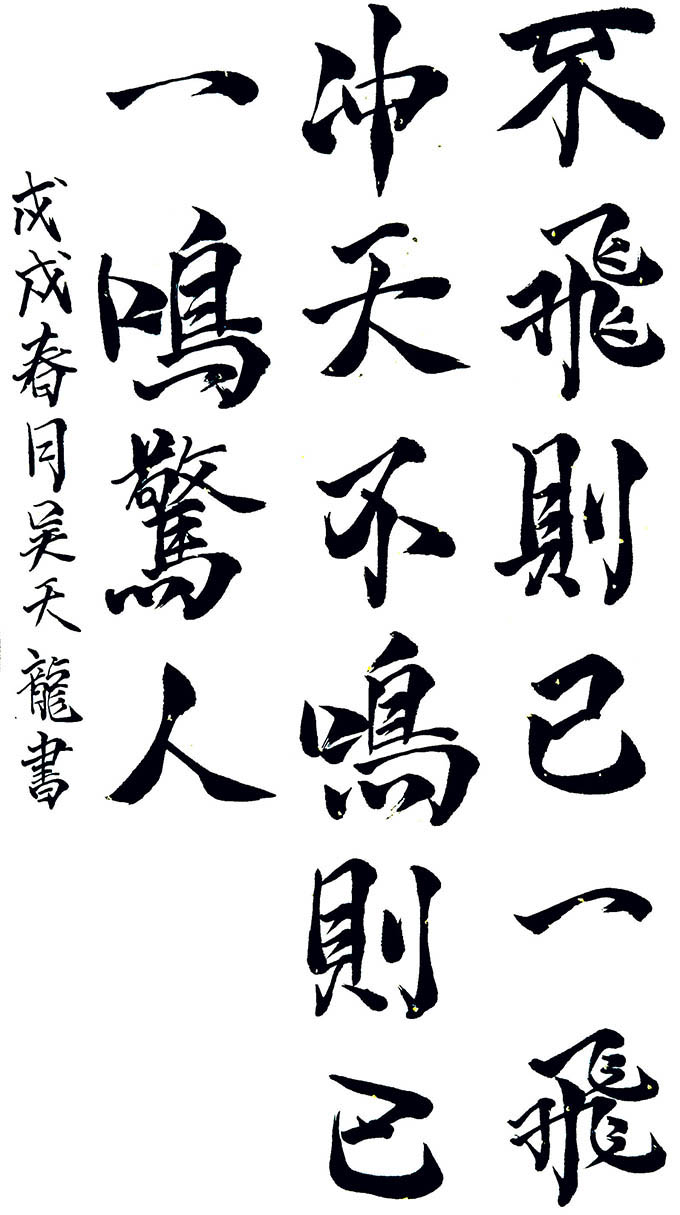 不飛則已一飛
沖天不鳴則已
一鳴驚人
戊戌春月吴天龍書